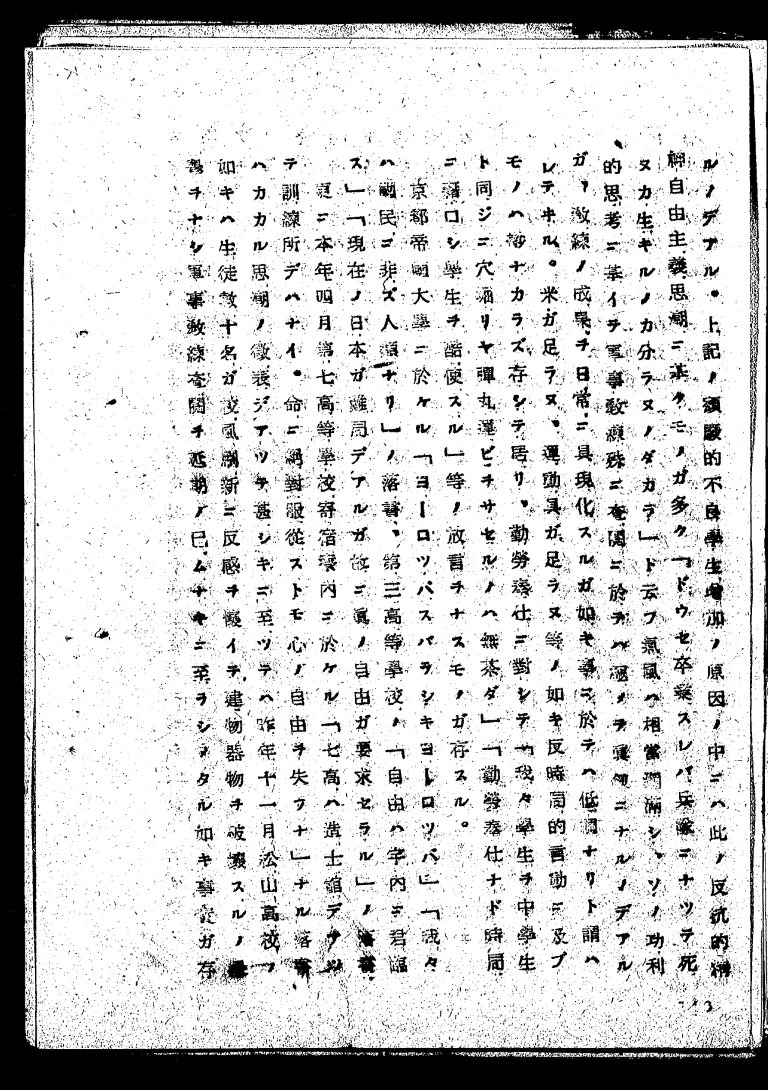 ルノデアル。上記ノ頽廢的不良學生增加ノ原因ノ中ニハ此ノ反抗的精
神自由主義思潮ニ基クモノガ多ク「ドウセ卒業スレバ兵隊ニナツテ死
ヌカ生キルノカ分ラヌノダカラ」ト云フ氣風ハ相當瀰滿シ、ソノ功利
的思考ニ基イテ軍事敎練殊ニ査閲ニ於テハ極メテ眞劍ニナルノデアル
ガ、敎練ノ成果ヲ日常ニ具現化スルガ如キ事ニ於テハ低調ナリト謂ハ
レテヰル。米ガ足ラヌ、運動具ガ足ラヌ等ノ如キ反時局的言動ニ及ブ
モノハ尠ナカラズ存シテ居リ、勤勞奉仕ニ對シテ「我々學生ヲ中學生
ト同ジニ穴堀リヤ彈丸運ビヲサセルノハ無茶ダ」「勤勞奉仕ナド時局
ニ藉口シ學生ヲ酷使スル」等ノ放言ヲナスモノガ存スル。
京都帝國大學ニ於ケル「ヨーロツパスバラシキヨーロツパ」「我々
ハ國民ニ非ズ人類ナリ」ノ落書、第三高等學校ノ「自由ハ宇內ニ君臨
ス」「現在ノ日本ガ難局デアルガ故ニ眞ノ自由ガ要求セラル」ノ落書、
更ニ本年四月第七高等學校寄宿寮內ニ於ケル「七高ハ造士館デアツ
テ訓練所デハナイ。命ニ絕對服從ストモ心ノ自由ヲ失フナ」ナル落書
ハカカル思潮ノ徵表デアツテ甚シキニ至ツテハ昨年十一月松山高校ノ
如キハ生徒數十名ガ校風刷新ニ反感ヲ懷イテ建物器物ヲ破壞スルノ
擧ヲナシ軍事敎練査閲ヲ延期ノ已ムナキニ至ラシメタル如キ事實ガ存